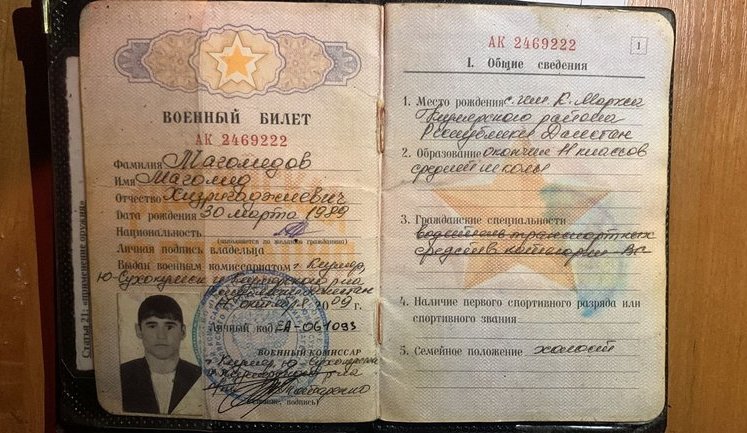 Статья 21: «применение оружие
ВОЕННЫЙ БИЛЕТ
АК 2469222
Фамилия Магомедов
Имя Магомед
Отчество
Дата рождения 30 марта 1989
Национальность
(заполняется по желанию гражданина)
Личная подпись владельца
Выдан военным комиссариатом г. Кизляр,
Личный код ЕА-061093
ВОЕННЫЙ КОМИССАР
АК 2469222
1
I. Общие сведения
1. Место рождения с. им. К. Маркса
Кизлярского района
Республики Дагестан
2. Образование окончил 11 классов
средней школы
3. Гражданские специальности
водитель транспортных
средств категории Вс
4. Наличие первого спортивного разряда или
спортивного звания
5. Семейное положение холост